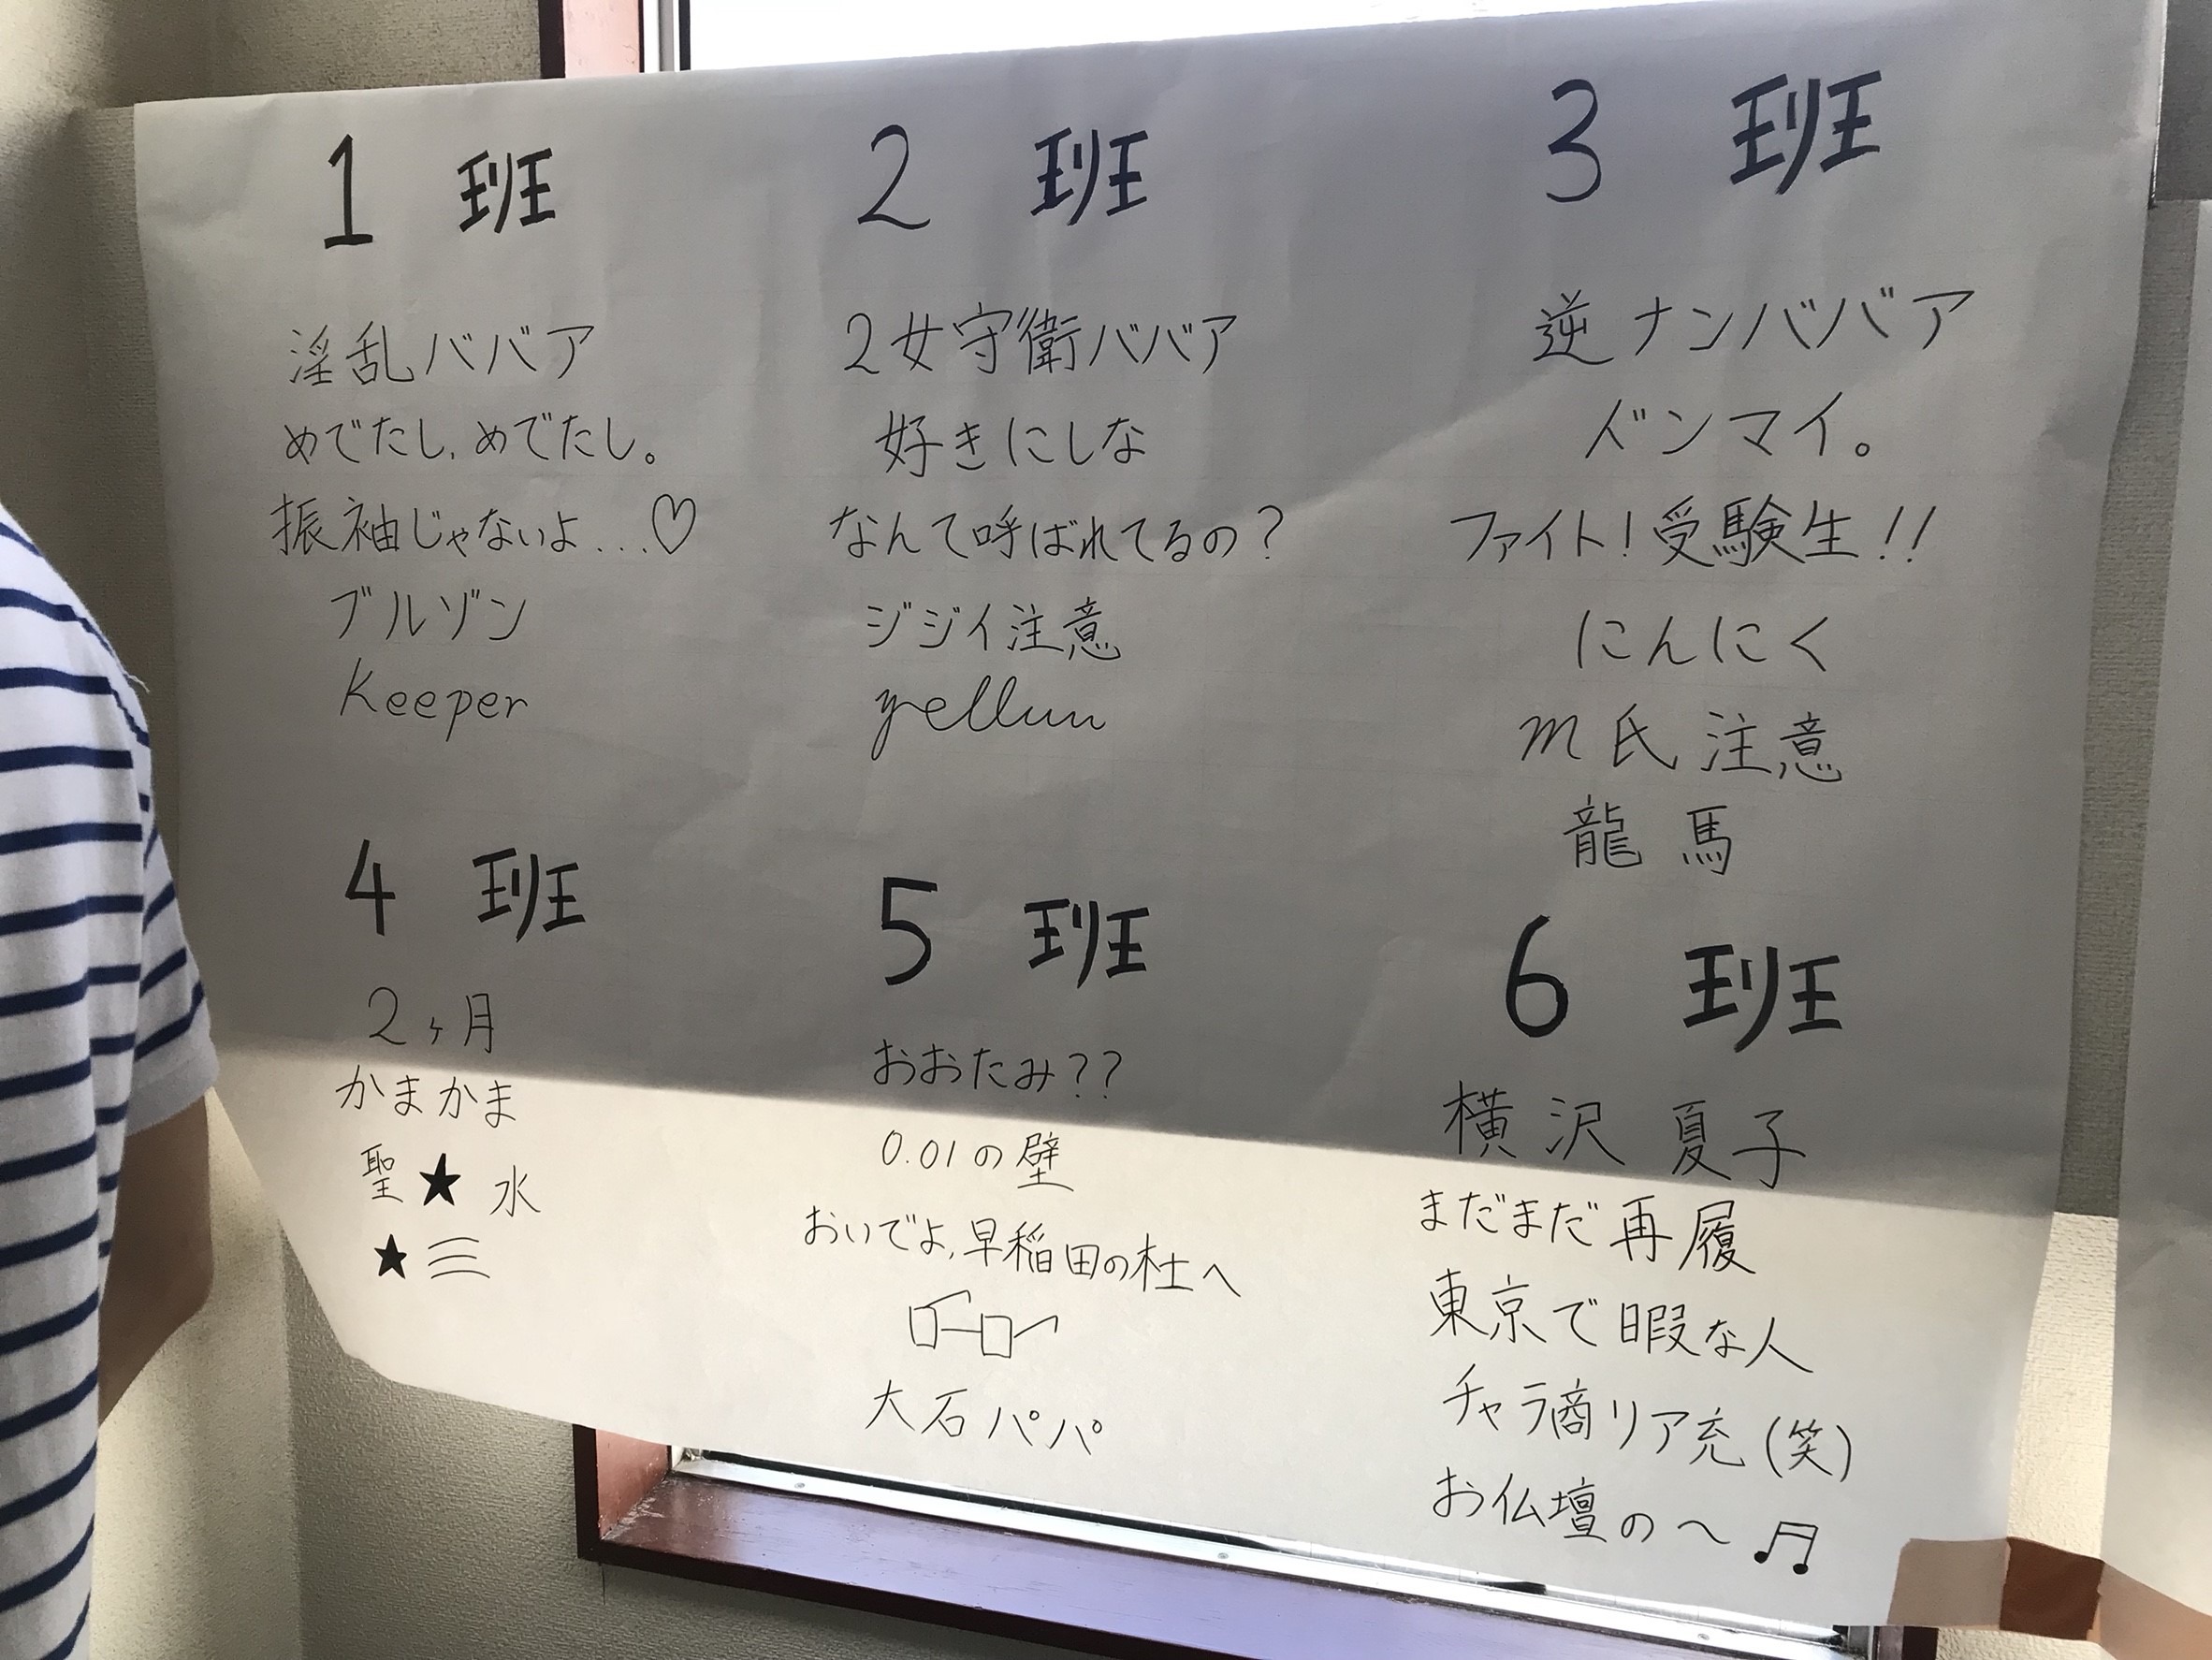 1 班
淫乱ババア
めでたし、めでたし。
振袖じゃないよ...♡
ブルゾン
Keeper
2 班
2女守衛ババア
好きにしな
なんて呼ばれてるの?
ジジイ注意
yellun
3 班
逆ナンババア
ドンマイ。
ファイト!受験生!!
にんにく
m氏注意
龍馬
4 班
2ヶ月
かまかま
聖★水
★彡
5 班
おおたみ??
0.01の壁
おいでよ、早稲田の杜へ
大石パパ
6 班
横沢 夏子
まだまだ再履
東京で暇な人
チャラ商リア充(笑)
お仏壇の〜♫